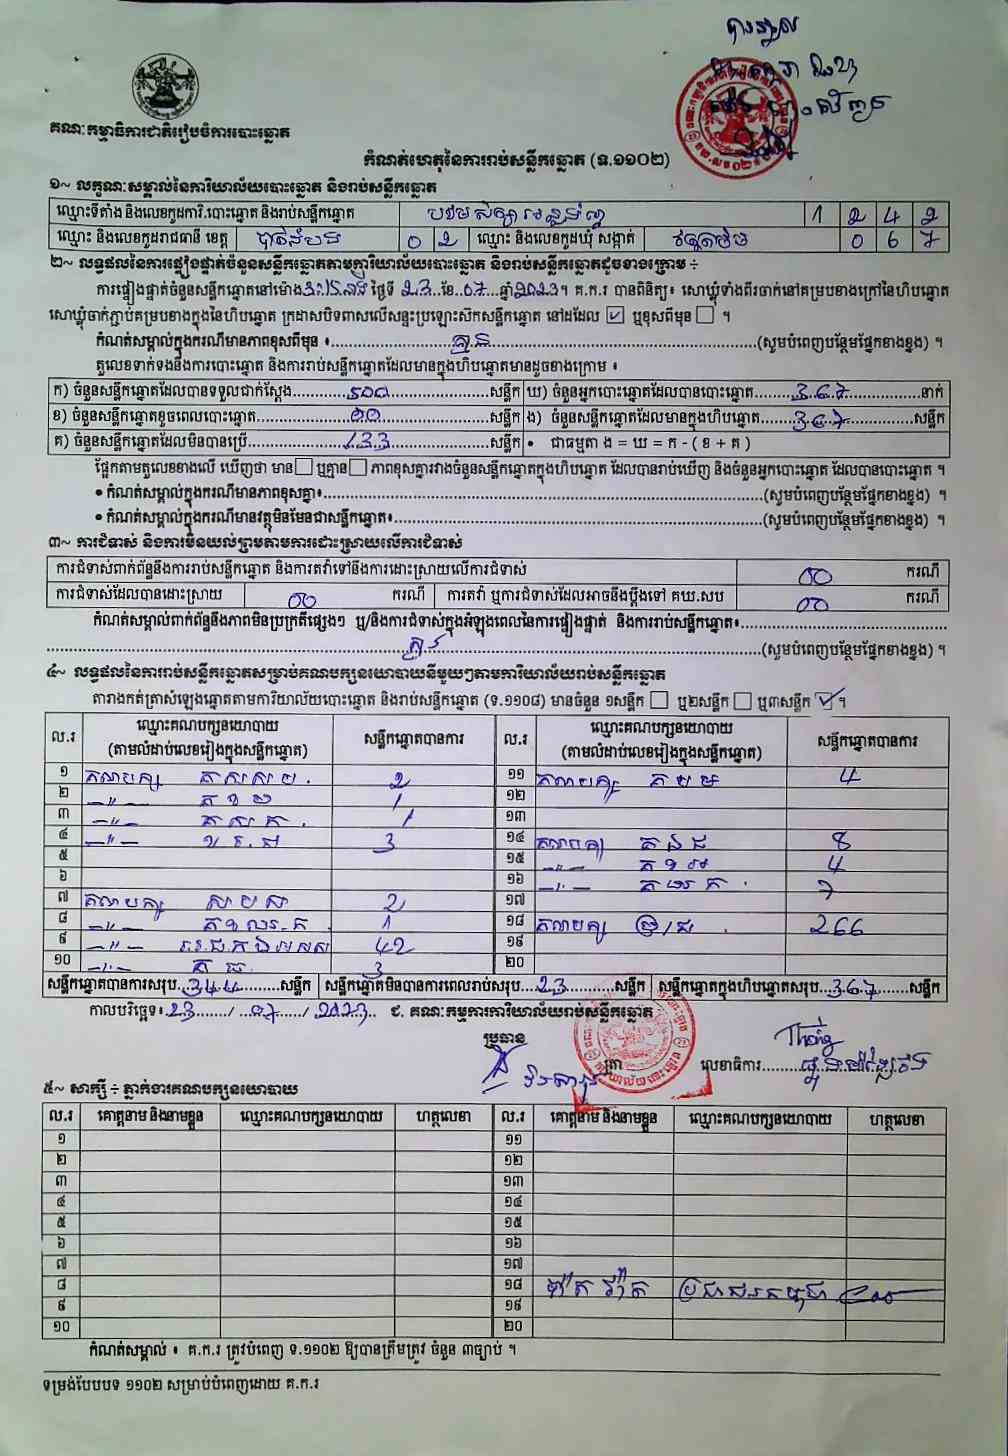 គណៈកម្មាធិការជាតិរៀបចំការបោះឆ្នោត
កំណត់ហេតុនៃការរាប់សន្លឹកឆ្នោត (ទ.១១០២)
១~ លក្ខណៈសម្គាល់នៃការិយាល័យបោះឆ្នោត និងរាប់សន្លឹកឆ្នោត
ឈ្មោះទីតាំង និងលេខកូដការិ.បោះឆ្នោត និងរាប់សន្លឹកឆ្នោត 1 2 4 2
ឈ្មោះ និងលេខកូដរាជធានី ខេត្ត បាត់ដំបង 0 2 ឈ្មោះ និងលេខកូដឃុំ សង្កាត់ 0 6 7
២~ លទ្ធផលនៃការផ្ទៀងផ្ទាត់ចំនួនសន្លឹកឆ្នោតតាមការិយាល័យបោះឆ្នោត និងរាប់សន្លឹកឆ្នោតដូចខាងក្រោម ÷
ការផ្ទៀងផ្ទាត់ចំនួនសន្លឹកឆ្នោតនៅម៉ោង ថ្ងៃទី 23 ខែ 07 ឆ្នាំ 2023។ គ.ក.រ បានពិនិត្យ៖ សោឃ្លុំទាំងពីរចាក់នៅគម្របខាងក្រៅនៃហិបឆ្នោត
សោឃ្លុំចាក់ភ្ជាប់គម្របខាងក្នុងនៃហិបឆ្នោត ក្រដាសបិទពាសលើសន្ទះប្រឡោះស៊ីកសន្លឹកឆ្នោត នៅដដែល ☑ ឬខុសពីមុន ☐ ។
កំណត់សម្គាល់ក្នុងករណីមានភាពខុសពីមុន ៖ គ្មាន (សូមបំពេញបន្ថែមផ្នែកខាងខ្នង) ។
តួលេខទាក់ទងនឹងការបោះឆ្នោត និងការរាប់សន្លឹកឆ្នោតដែលមានក្នុងហិបឆ្នោតមានដូចខាងក្រោម ៖
ក) ចំនួនសន្លឹកឆ្នោតដែលបានទទួលជាក់ស្តែង 500 សន្លឹក ឃ) ចំនួនអ្នកបោះឆ្នោតដែលបានបោះឆ្នោត 367 នាក់
ខ) ចំនួនសន្លឹកឆ្នោតខូចពេលបោះឆ្នោត 00 សន្លឹក ង) ចំនួនសន្លឹកឆ្នោតដែលមានក្នុងហិបឆ្នោត 367 សន្លឹក
គ) ចំនួនសន្លឹកឆ្នោតដែលមិនបានប្រើ 133 សន្លឹក • ជាធម្មតា ង = ឃ = ក - ( ខ + គ )
ផ្អែកតាមតួលេខខាងលើ ឃើញថា មាន ☐ ឬគ្មាន ☐ ភាពខុសគ្នារវាងចំនួនសន្លឹកឆ្នោតក្នុងហិបឆ្នោត ដែលបានរាប់ឃើញ និងចំនួនអ្នកបោះឆ្នោត ដែលបានបោះឆ្នោត ។
• កំណត់សម្គាល់ក្នុងករណីមានភាពខុសគ្នា៖ (សូមបំពេញបន្ថែមផ្នែកខាងខ្នង) ។
• កំណត់សម្គាល់ក្នុងករណីមានវត្ថុមិនមែនជាសន្លឹកឆ្នោត៖ (សូមបំពេញបន្ថែមផ្នែកខាងខ្នង) ។
៣~ ការជំទាស់ និងការមិនយល់ព្រមតាមការដោះស្រាយលើការជំទាស់
ការជំទាស់ពាក់ព័ន្ធនឹងការរាប់សន្លឹកឆ្នោត និងការតវ៉ាទៅនឹងការដោះស្រាយលើការជំទាស់ 00 ករណី
ការជំទាស់ដែលបានដោះស្រាយ 00 ករណី ការតវ៉ា ឬការជំទាស់ដែលអាចនឹងប្តឹងទៅ គឃ.សប 00 ករណី
កំណត់សម្គាល់ពាក់ព័ន្ធនឹងភាពមិនប្រក្រតីផ្សេងៗ ឬ/និងការជំទាស់ក្នុងអំឡុងពេលនៃការផ្ទៀងផ្ទាត់ និងការរាប់សន្លឹកឆ្នោត៖
គ្មាន (សូមបំពេញបន្ថែមផ្នែកខាងខ្នង) ។
៤~ លទ្ធផលនៃការរាប់សន្លឹកឆ្នោតសម្រាប់គណបក្សនយោបាយនីមួយៗតាមការិយាល័យរាប់សន្លឹកឆ្នោត
តារាងកត់ត្រាសំឡេងឆ្នោតតាមការិយាល័យបោះឆ្នោត និងរាប់សន្លឹកឆ្នោត (ទ.១១០៨) មានចំនួន ១សន្លឹក ☐ ឬ២សន្លឹក ☐ ឬ៣សន្លឹក ☑ ។
ល.រ ឈ្មោះគណបក្សនយោបាយ (តាមលំដាប់លេខរៀងក្នុងសន្លឹកឆ្នោត) សន្លឹកឆ្នោតបានការ ល.រ ឈ្មោះគណបក្សនយោបាយ (តាមលំដាប់លេខរៀងក្នុងសន្លឹកឆ្នោត) សន្លឹកឆ្នោតបានការ
១ គណបក្ស 2 ១១ គណបក្ស 4
២ -"- 1 ១២
៣ -"- 1 ១៣
៤ -"- 3 ១៤ គណបក្ស 8
៥ ១៥ -"- 4
៦ ១៦ -"- 7
៧ គណបក្ស 2 ១៧
៨ -"- 1 ១៨ គណបក្ស 266
៩ -"- 42 ១៩
១០ -"- 3 ២០
សន្លឹកឆ្នោតបានការសរុប 344 សន្លឹក សន្លឹកឆ្នោតមិនបានការពេលរាប់សរុប 23 សន្លឹក សន្លឹកឆ្នោតក្នុងហិបឆ្នោតសរុប 367 សន្លឹក
កាលបរិច្ឆេទ៖ 23 / 07 / 2023 ជ. គណៈកម្មការការិយាល័យរាប់សន្លឹកឆ្នោត
ប្រធាន
ត្រា លេខាធិការ
៥~ សាក្សី ÷ ភ្នាក់ងារគណបក្សនយោបាយ
ល.រ គោត្តនាម និងនាមខ្លួន ឈ្មោះគណបក្សនយោបាយ ហត្ថលេខា ល.រ គោត្តនាម និងនាមខ្លួន ឈ្មោះគណបក្សនយោបាយ ហត្ថលេខា
១ ១១
២ ១២
៣ ១៣
៤ ១៤
៥ ១៥
៦ ១៦
៧ ១៧
៨ ១៨ ប្រជាជនកម្ពុជា
៩ ១៩
១០ ២០
កំណត់សម្គាល់ ៖ គ.ក.រ ត្រូវបំពេញ ទ.១១០២ ឱ្យបានត្រឹមត្រូវ ចំនួន ៣ច្បាប់ ។
ទម្រង់បែបបទ ១១០២ សម្រាប់បំពេញដោយ គ.ក.រ